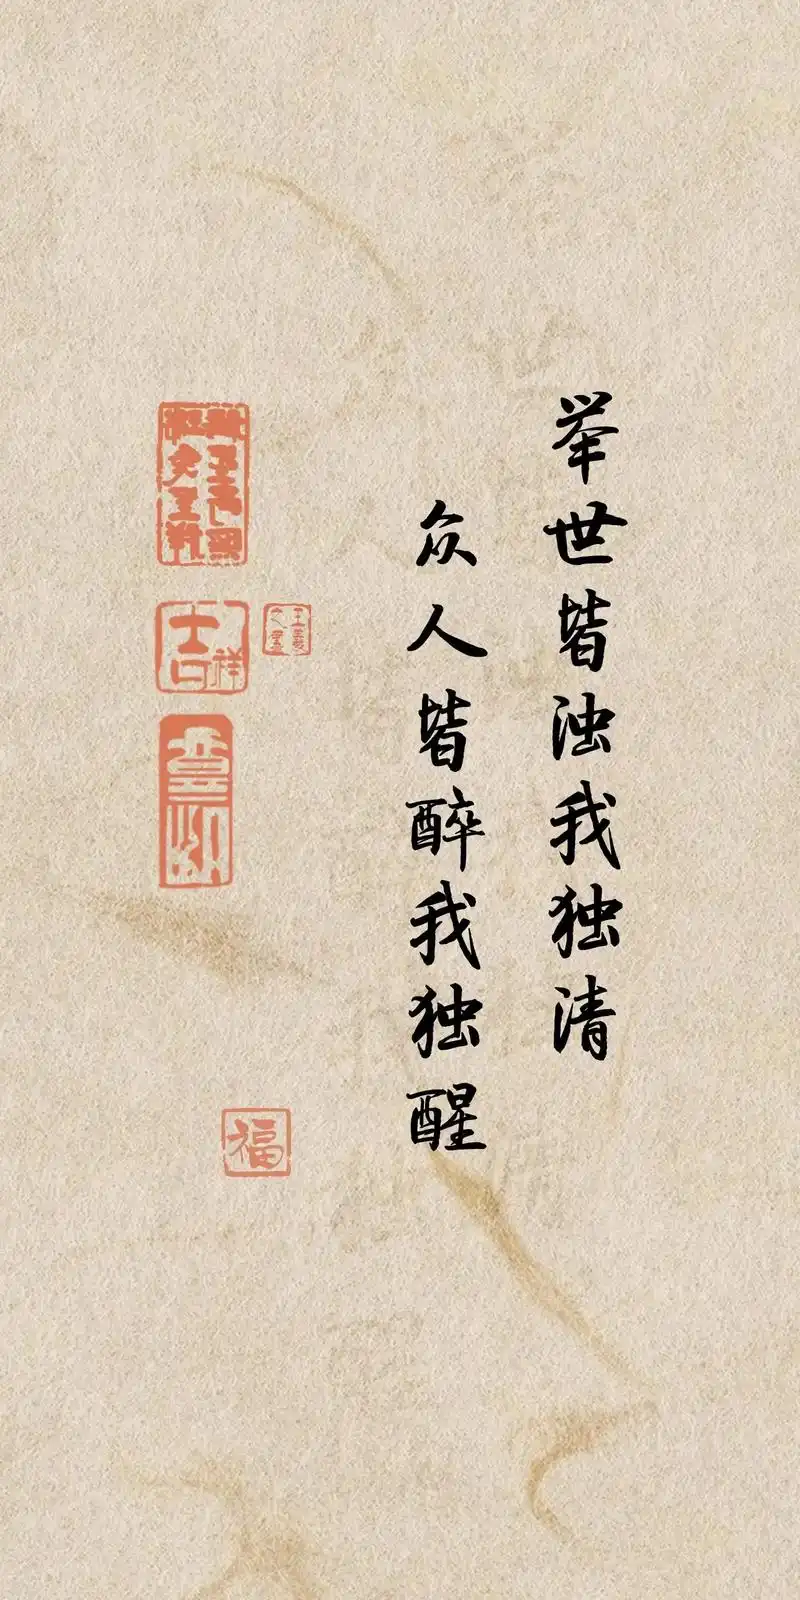 举世皆浊我独清
众人皆醉我独醒
吉祥
福